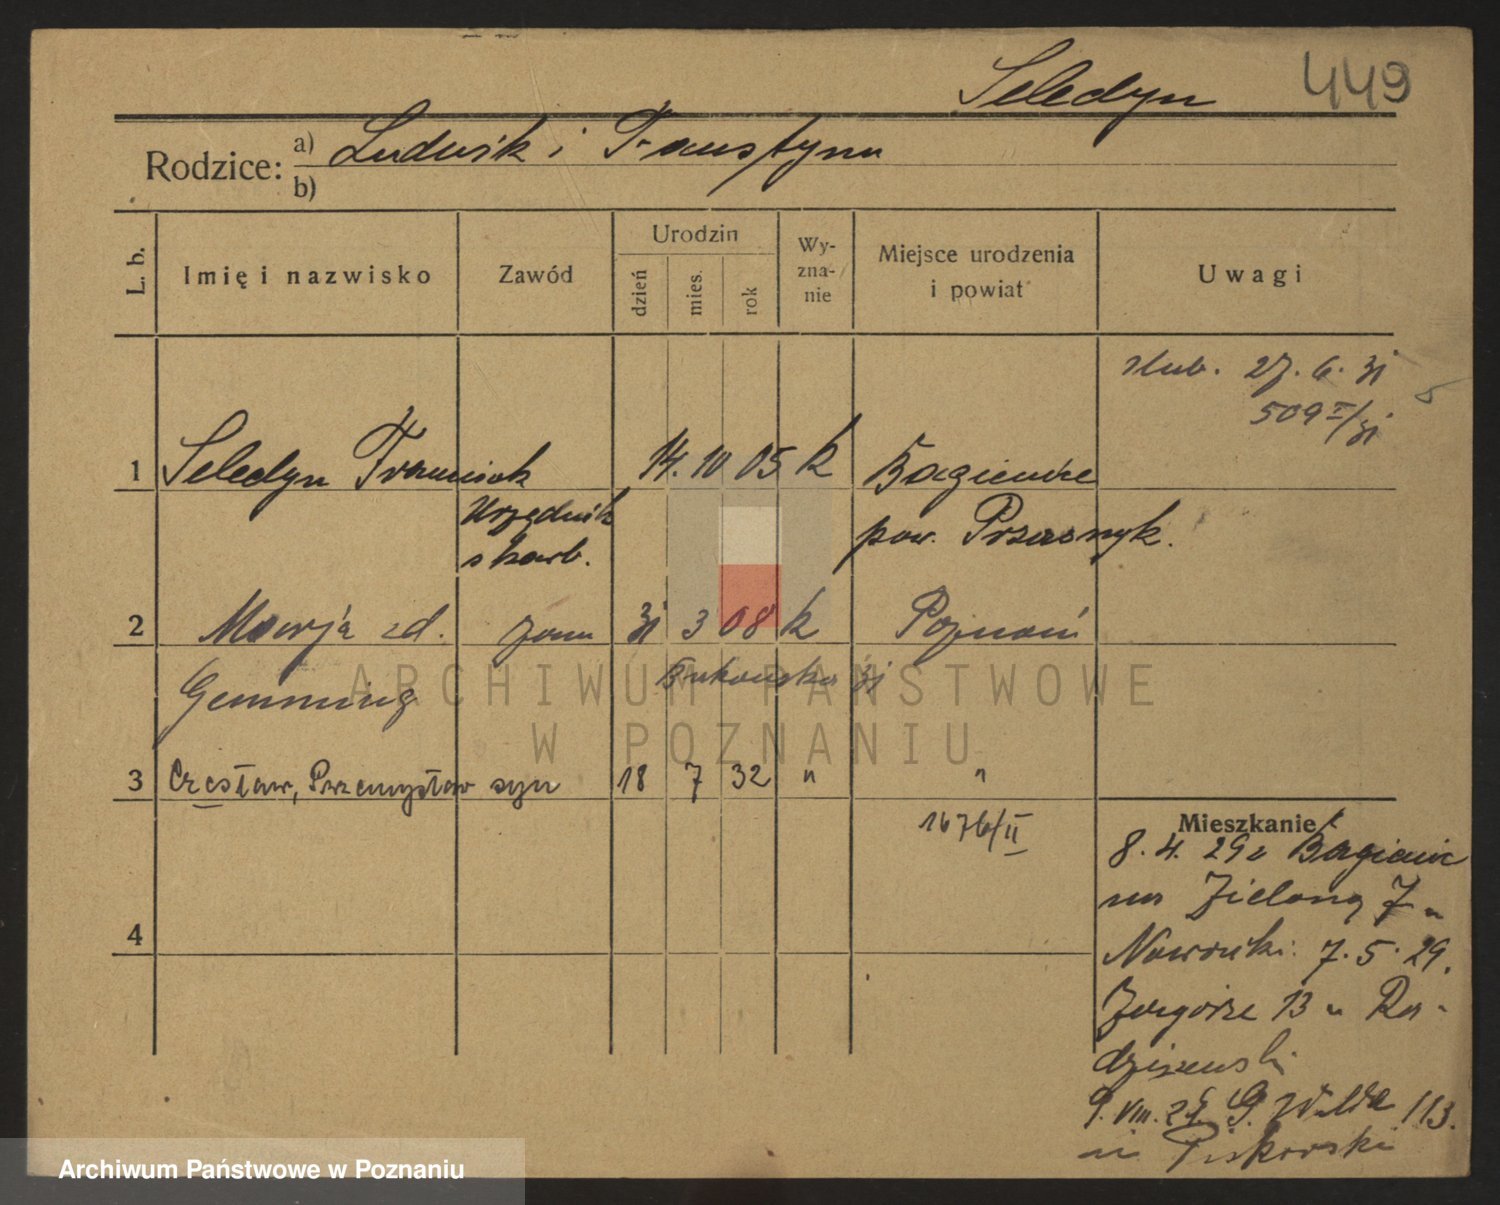 Seledyn 449
Rodzice: a) Ludwik i Faustyna
b)
L. b. Imię i nazwisko Zawód Urodzin dzień mies. rok Wyznanie Miejsce urodzenia i powiat Uwagi
ślub. 27. 6. 31
509 I/31
1 Seledyn Franciszek 14. 10 05 k Bagienice
Urzędnik pow. Przasnysk.
skarb.
2 Marja zd. żona 31 3 08 k Poznań
Gemming Bukowska 31
3 Czesław, Przemysław syn 18 7 32 " "
1676/II
Mieszkanie
8. 4. 29 z Bagienic
na Zieloną 7 u
4
Nowoński 7. 5. 29.
Zagórze 13 u Ra-
dziszewski
9. VIII. 29 G. Wilda 113.
u Piskorski
ARCHIWUM PAŃSTWOWE
W POZNANIU
Archiwum Państwowe w Poznaniu